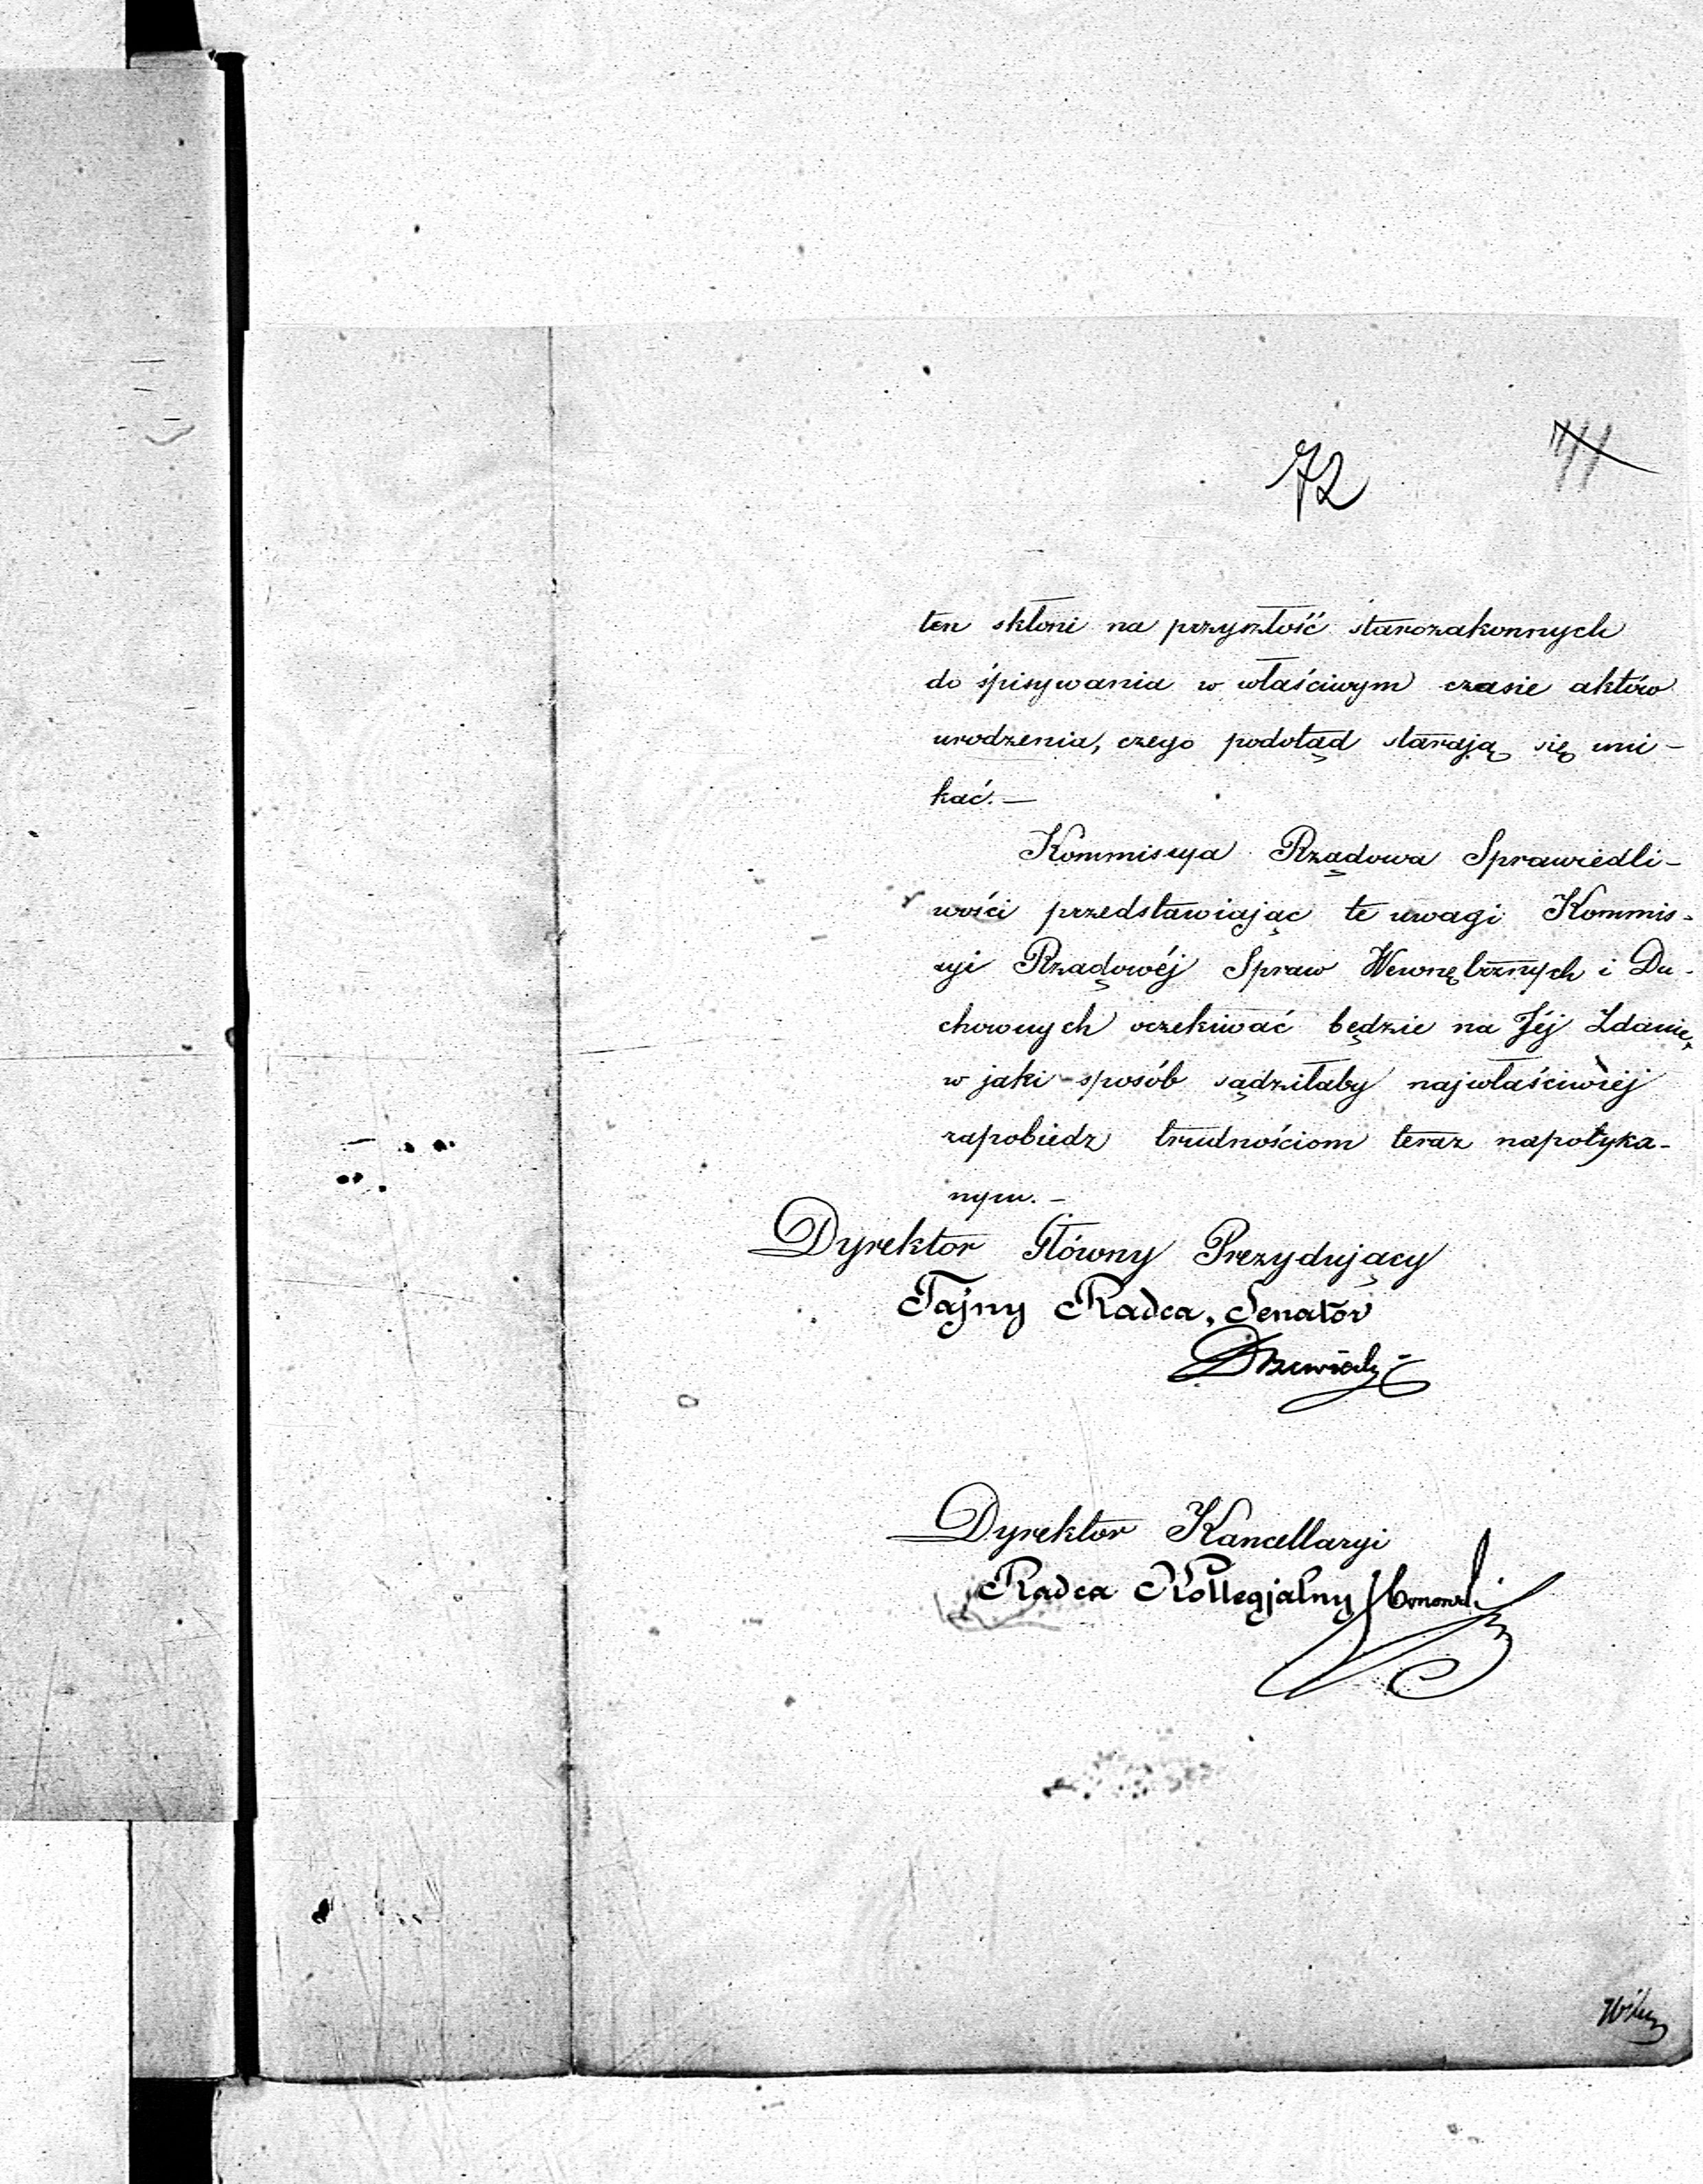 72
71
ten skłoni na przyszłość starozakonnych
do spisywania w właściwym czasie aktów
urodzenia, czego podotąd starają się uni-
kać. —
Kommissya Rządowa Sprawiedli-
wości przedstawiając te uwagi Kommis-
syi Rządowéj Spraw Wewnętrznych i Du-
chownych oczekiwać będzie na Jéj Zdanie,
w jaki sposób sądziłaby najwłaściwiéj
zapobiedz trudnościom teraz napotyka-
nym. —
Dyrektor Główny Prezydujący
Tajny Radca, Senator
Dyrektor Kancellaryi
Radca Kollegjalny